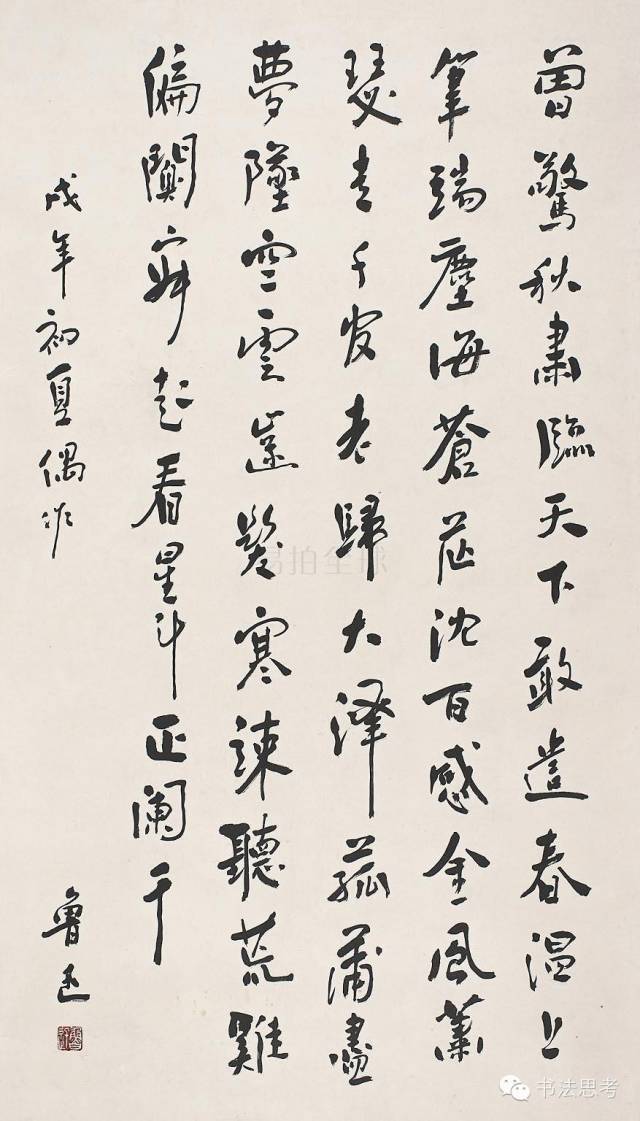 曾驚秋肅臨天下敢遣春温上
筆端塵海蒼茫沈百感金風蕭
瑟走千官老歸大澤菰蒲盡
夢墜空雲齒髮寒竦聽荒雞
偏闃寂起看星斗正闌干
戌年初夏偶作
魯迅
易拍全球
书法思考